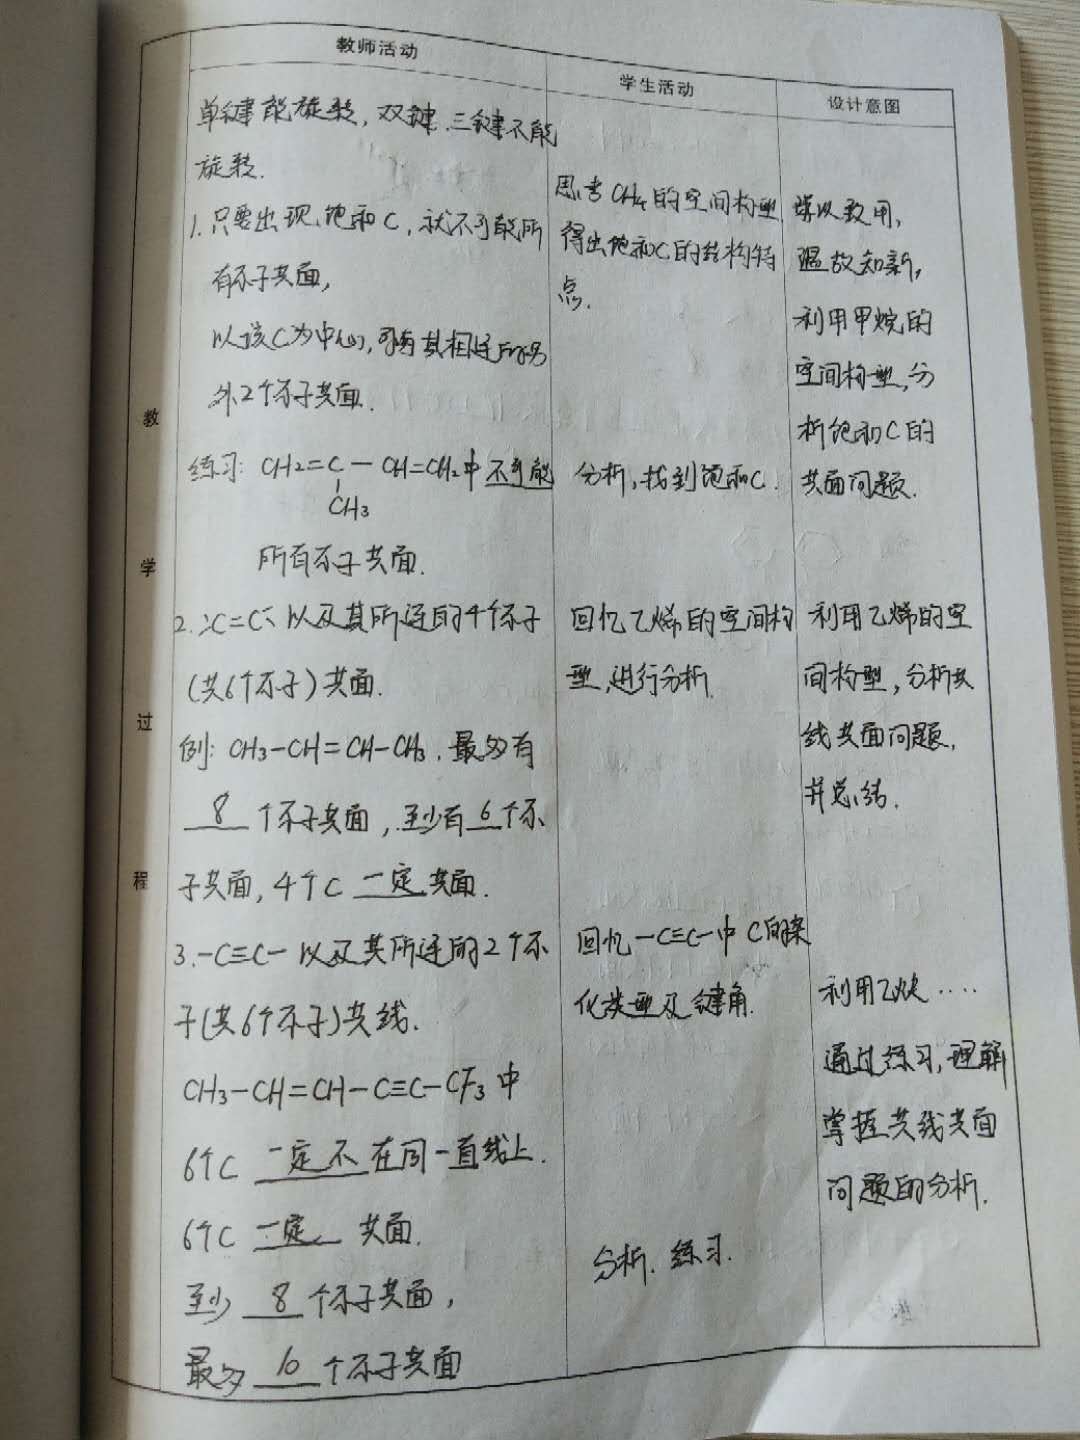 教师活动
学生活动
设计意图
教学过程
单键能旋转,双键、三键不能
旋转.
1.只要出现饱和C,就不可能所
有原子共面,
以该C为中心,可与其相连的另
外2个原子共面.
练习: CH2=C—CH=CH2中不可能
CH3
所有原子共面.
2. >C=C< 以及其所连的4个原子
(共6个原子)共面.
例: CH3-CH=CH-CH3.最多有
8个原子共面,至少有6个原
子共面,4个C一定共面.
3.-C≡C-以及其所连的2个原
子(共6个原子)共线.
CH3-CH=CH-C≡C-CF3中
6个C一定不在同一直线上.
6个C一定共面.
至少8个原子共面,
最多10个原子共面
思考CH4的空间构型
得出饱和C的结构特
点.
分析,找到饱和C.
回忆乙烯的空间构
型,进行分析.
回忆-C≡C-中C的杂
化类型及键角.
分析.练习.
学以致用,
温故知新,
利用甲烷的
空间构型,分
析饱和C的
共面问题.
利用乙烯的空
间构型,分析共
线共面问题,
并总结.
利用乙炔····
通过练习,理解
掌握共线共面
问题的分析.